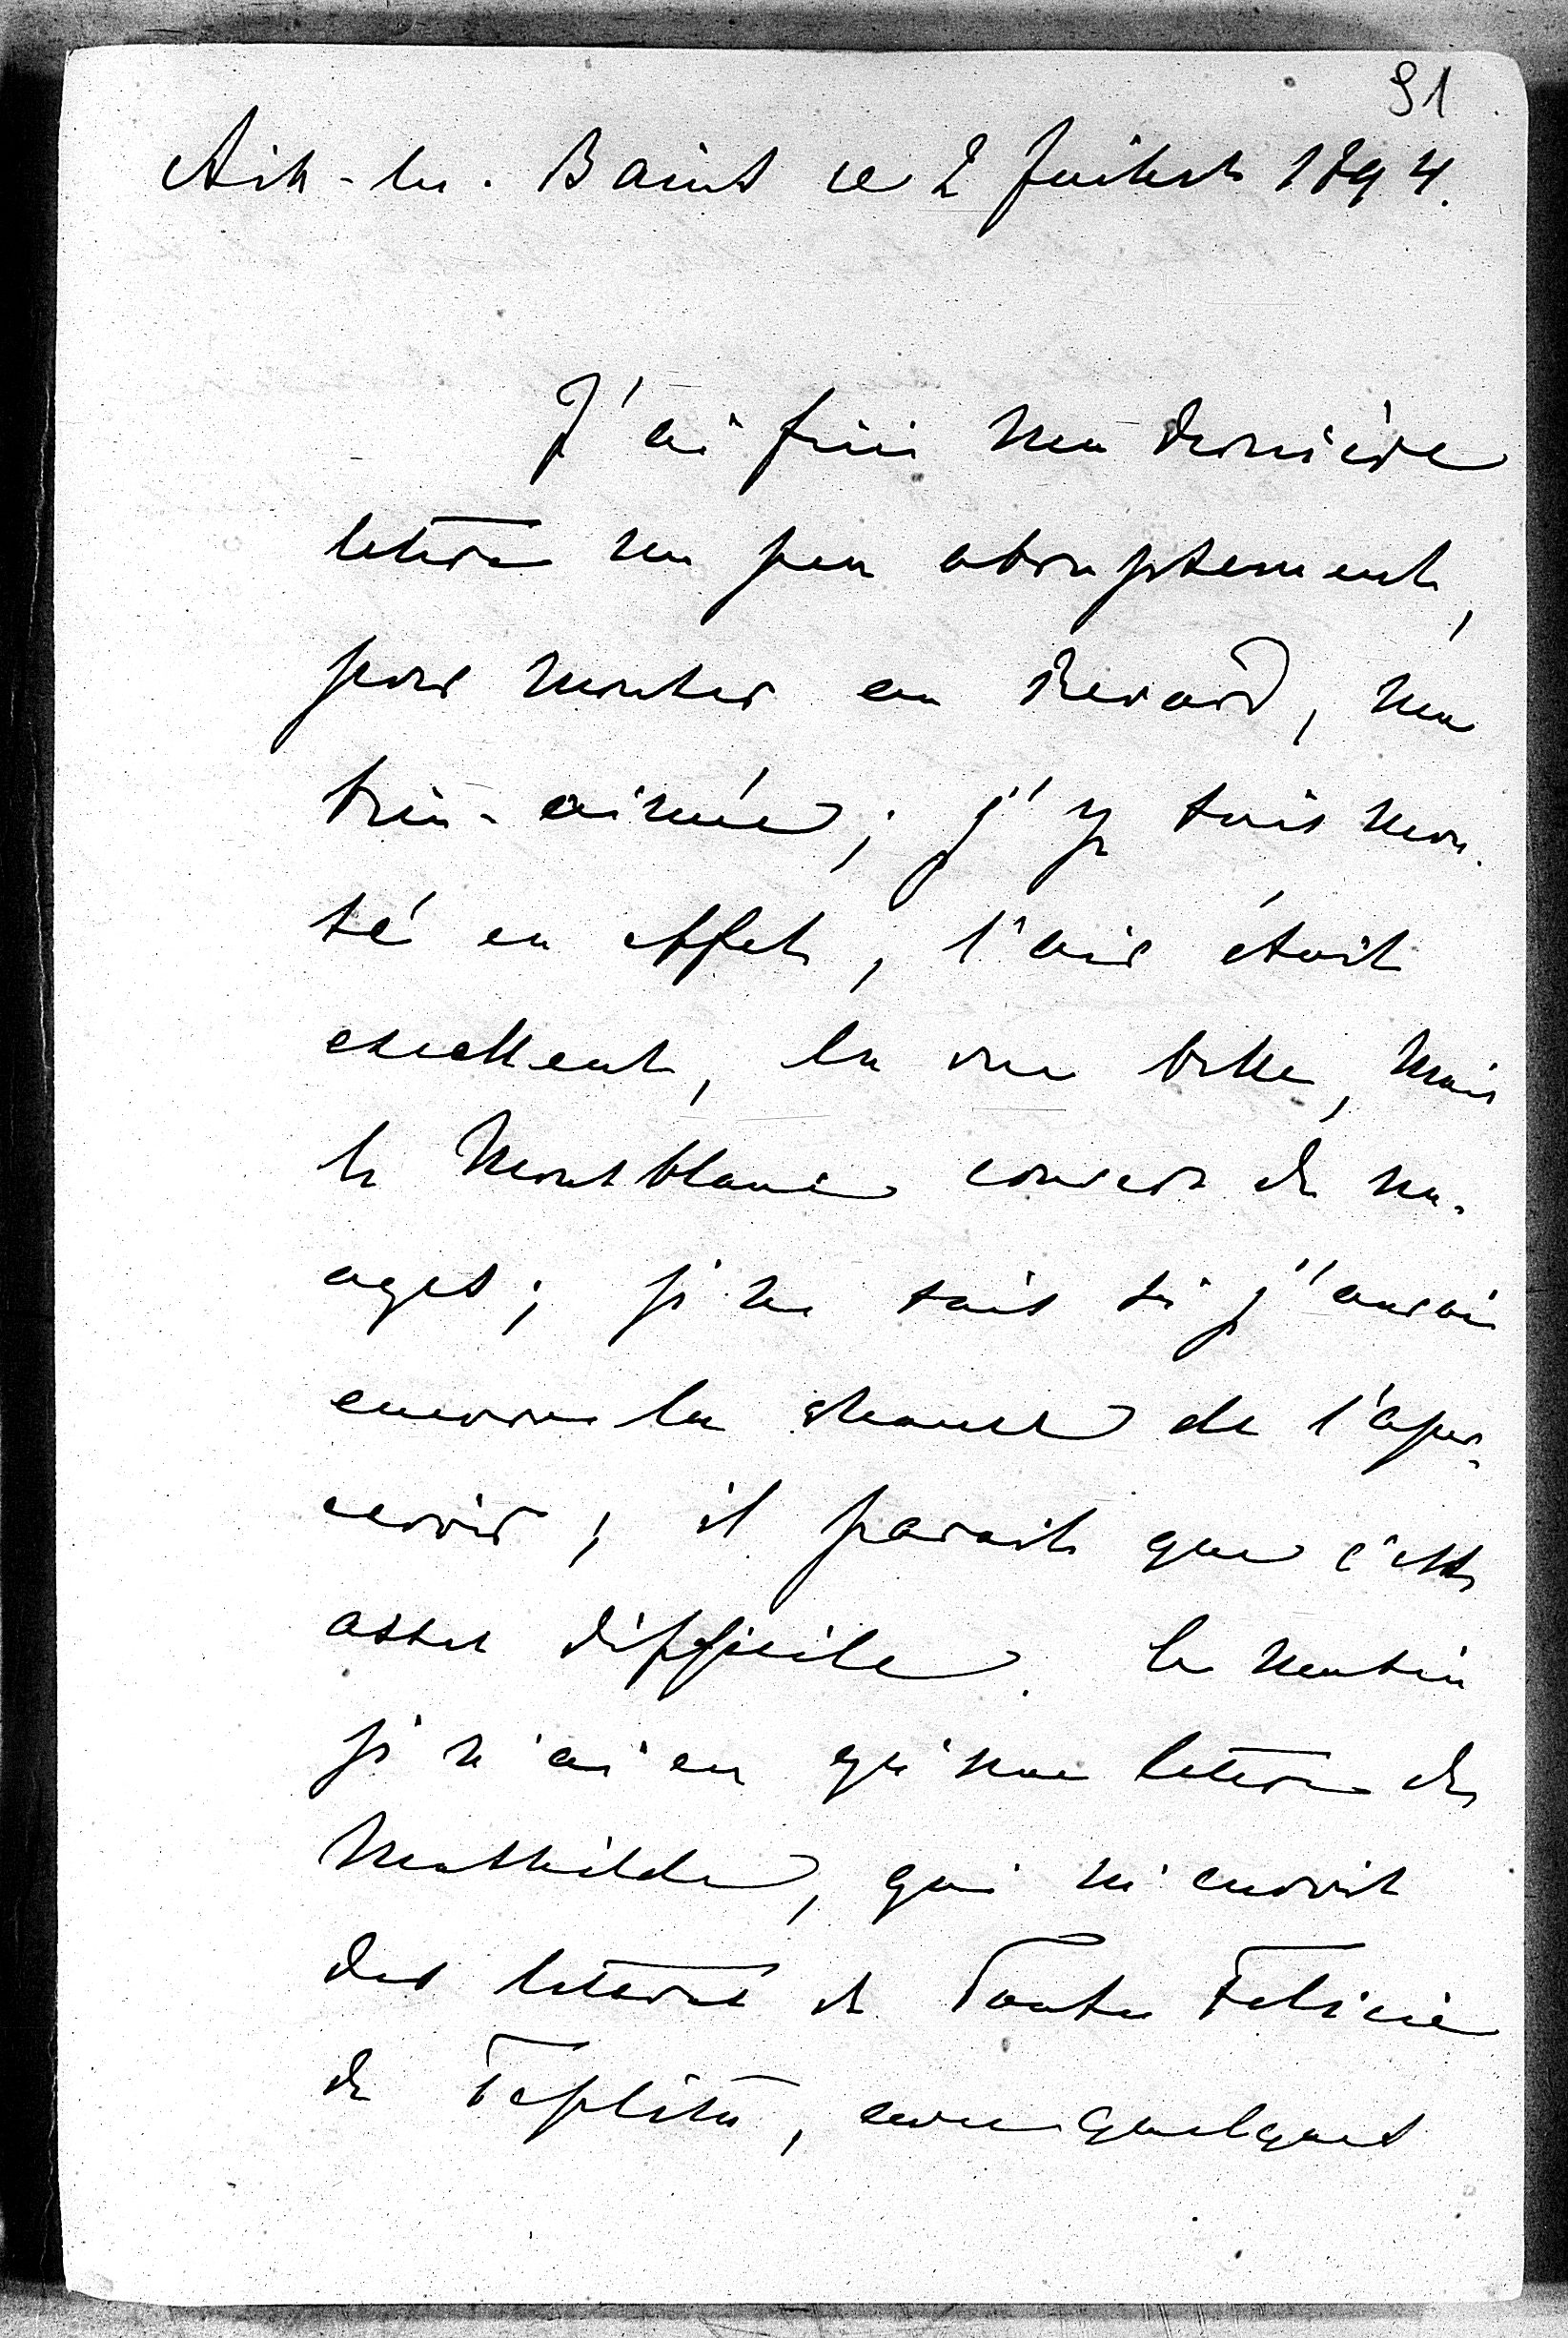 91
Aix-les-Bains ce 2 Juillet 1894.
J'ai fini ma dernière
lettre un peu abruptement,
pour monter au Revard, ma
bien-aimée; j'y suis mon-
té en effet, l'air était
excellent, la vue belle, mais
le Montblanc couvert de nu-
ages; je ne sais si j'aurai
encore la chance de l'aper-
cevoir; il parait que c'est
assez difficile. Ce matin
je n'ai eu qu'une lettre de
Mathilde, qui m'envoit
des lettres de Tante Felicie
de Teplitz, avec quelques